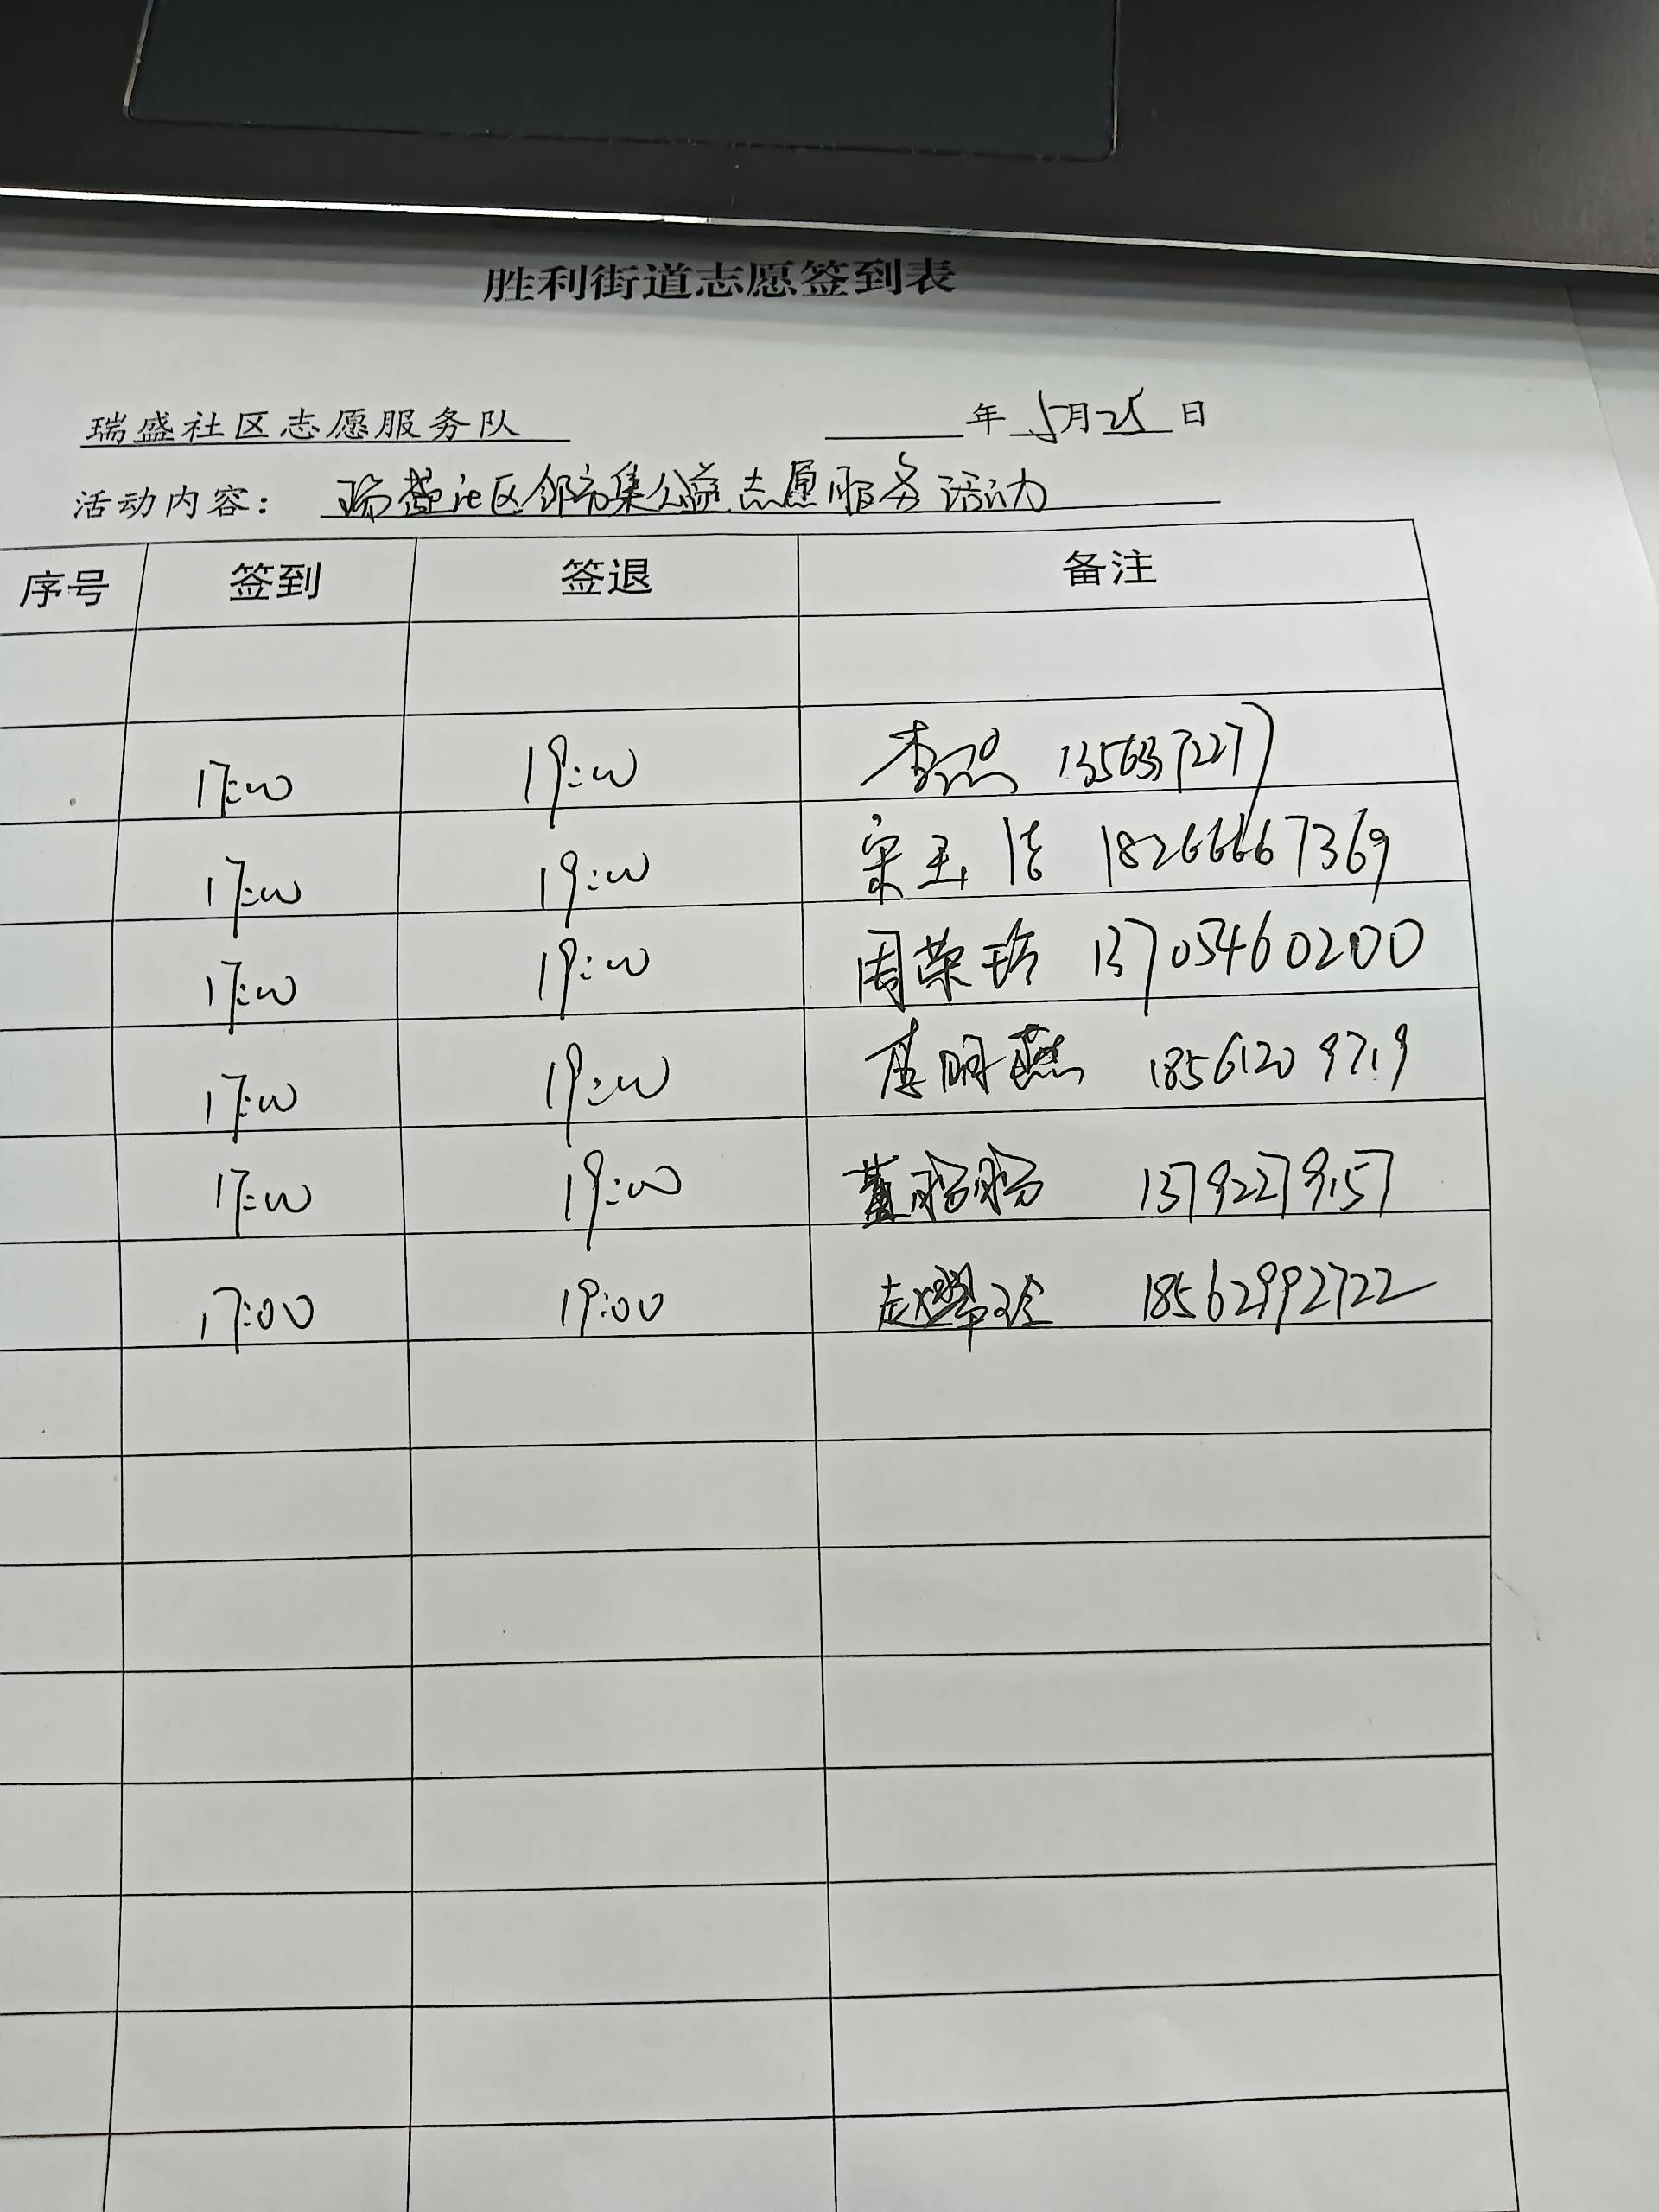 胜利街道志愿签到表
瑞盛社区志愿服务队 年 5月25日
活动内容： 瑞盛社区邻市集公益志愿服务活动
序号 签到 签退 备注
17:00 19:00 李 
17:00 19:00 宋玉洁 18266667369
17:00 19:00 周荣 13705460200
17:00 19:00 李明燕 18561209719
17:00 19:00 董盼盼 13792279157
17:00 19:00 赵翠玲 18562992722